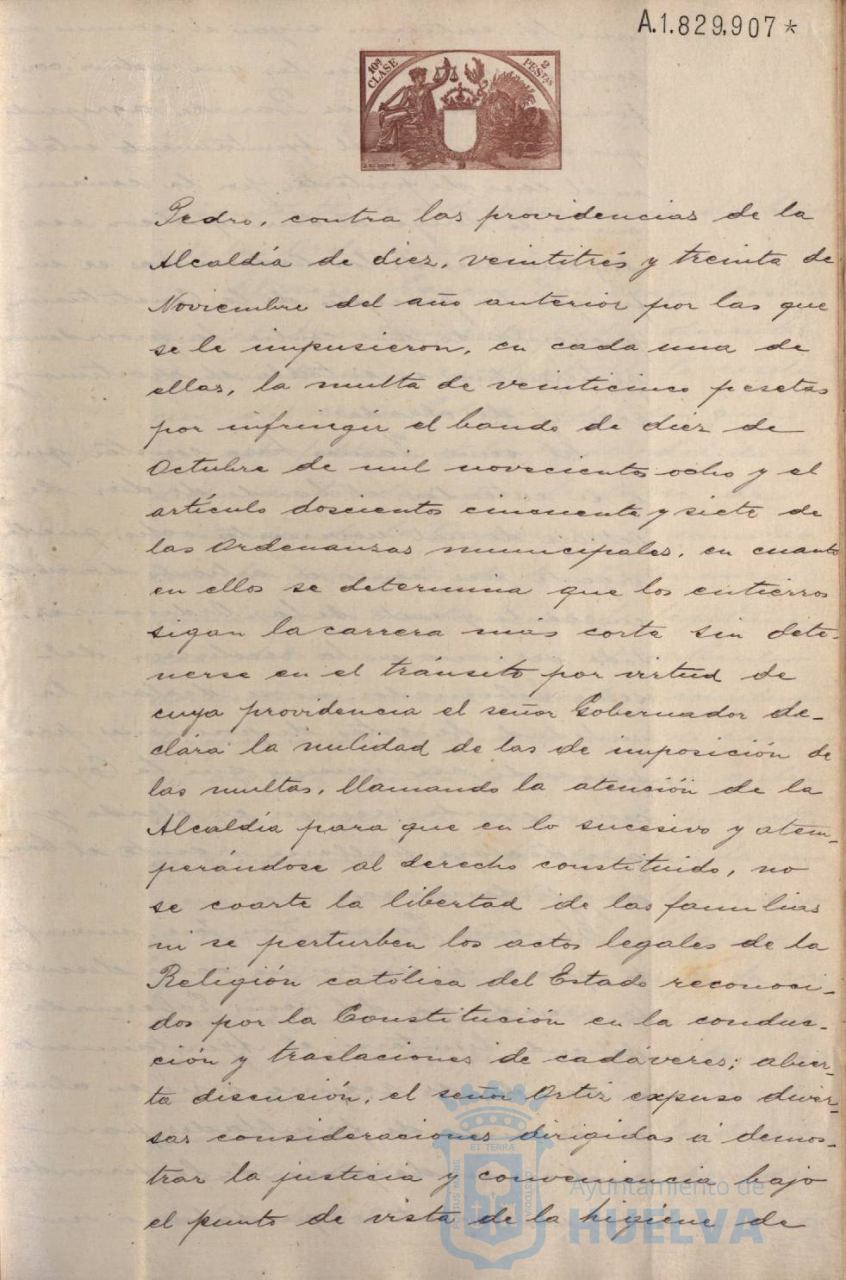 A.1.829.907*
10ª CLASE
2 PESTAS
Pedro, contra las providencias de la
Alcaldía de diez, veintitrés y treinta de
Noviembre del año anterior por las que
se le impusieron, en cada una de
ellas, la multa de veinticinco pesetas
por infringir el bando de diez de
Octubre de mil novecientos ocho y el
artículo doscientos cincuenta y siete de
las Ordenanzas municipales, en cuanto
en ellos se determina que los entierros
sigan la carrera más corta sin dete-
nerse en el tránsito por virtud de
cuya providencia el señor Gobernador de-
clara la nulidad de las de imposición de
las multas, llamando la atención de la
Alcaldía para que en lo sucesivo y atem-
perándose al derecho constituido, no
se coarte la libertad de las familias
ni se perturben los actos legales de la
Religión católica del Estado reconoci-
dos por la Constitución en la conduc-
ción y traslaciones de cadáveres; abier-
ta discusión, el señor Ortiz expuso diver-
sas consideraciones dirigidas á demos-
trar la justicia y conveniencia bajo
el punto de vista de la higiene de
Ayuntamiento de
HUELVA